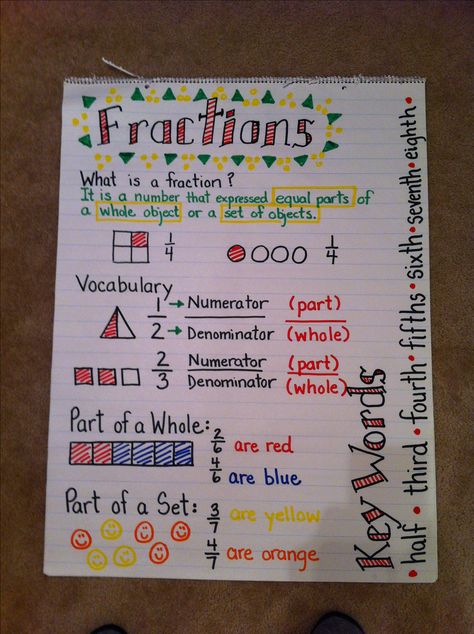 Fractions
What is a fraction?
It is a number that expressed equal parts of
a whole object or a set of objects.
1/4
1/4
Vocabulary
1/2 → Numerator (part)
→ Denominator (whole)
2/3 Numerator (part)
Denominator (whole)
Part of a Whole:
2/6 are red
4/6 are blue
Part of a Set:
3/7 are yellow
4/7 are orange
Key Words
• half • third • fourth • fifths • sixth • seventh • eighth •